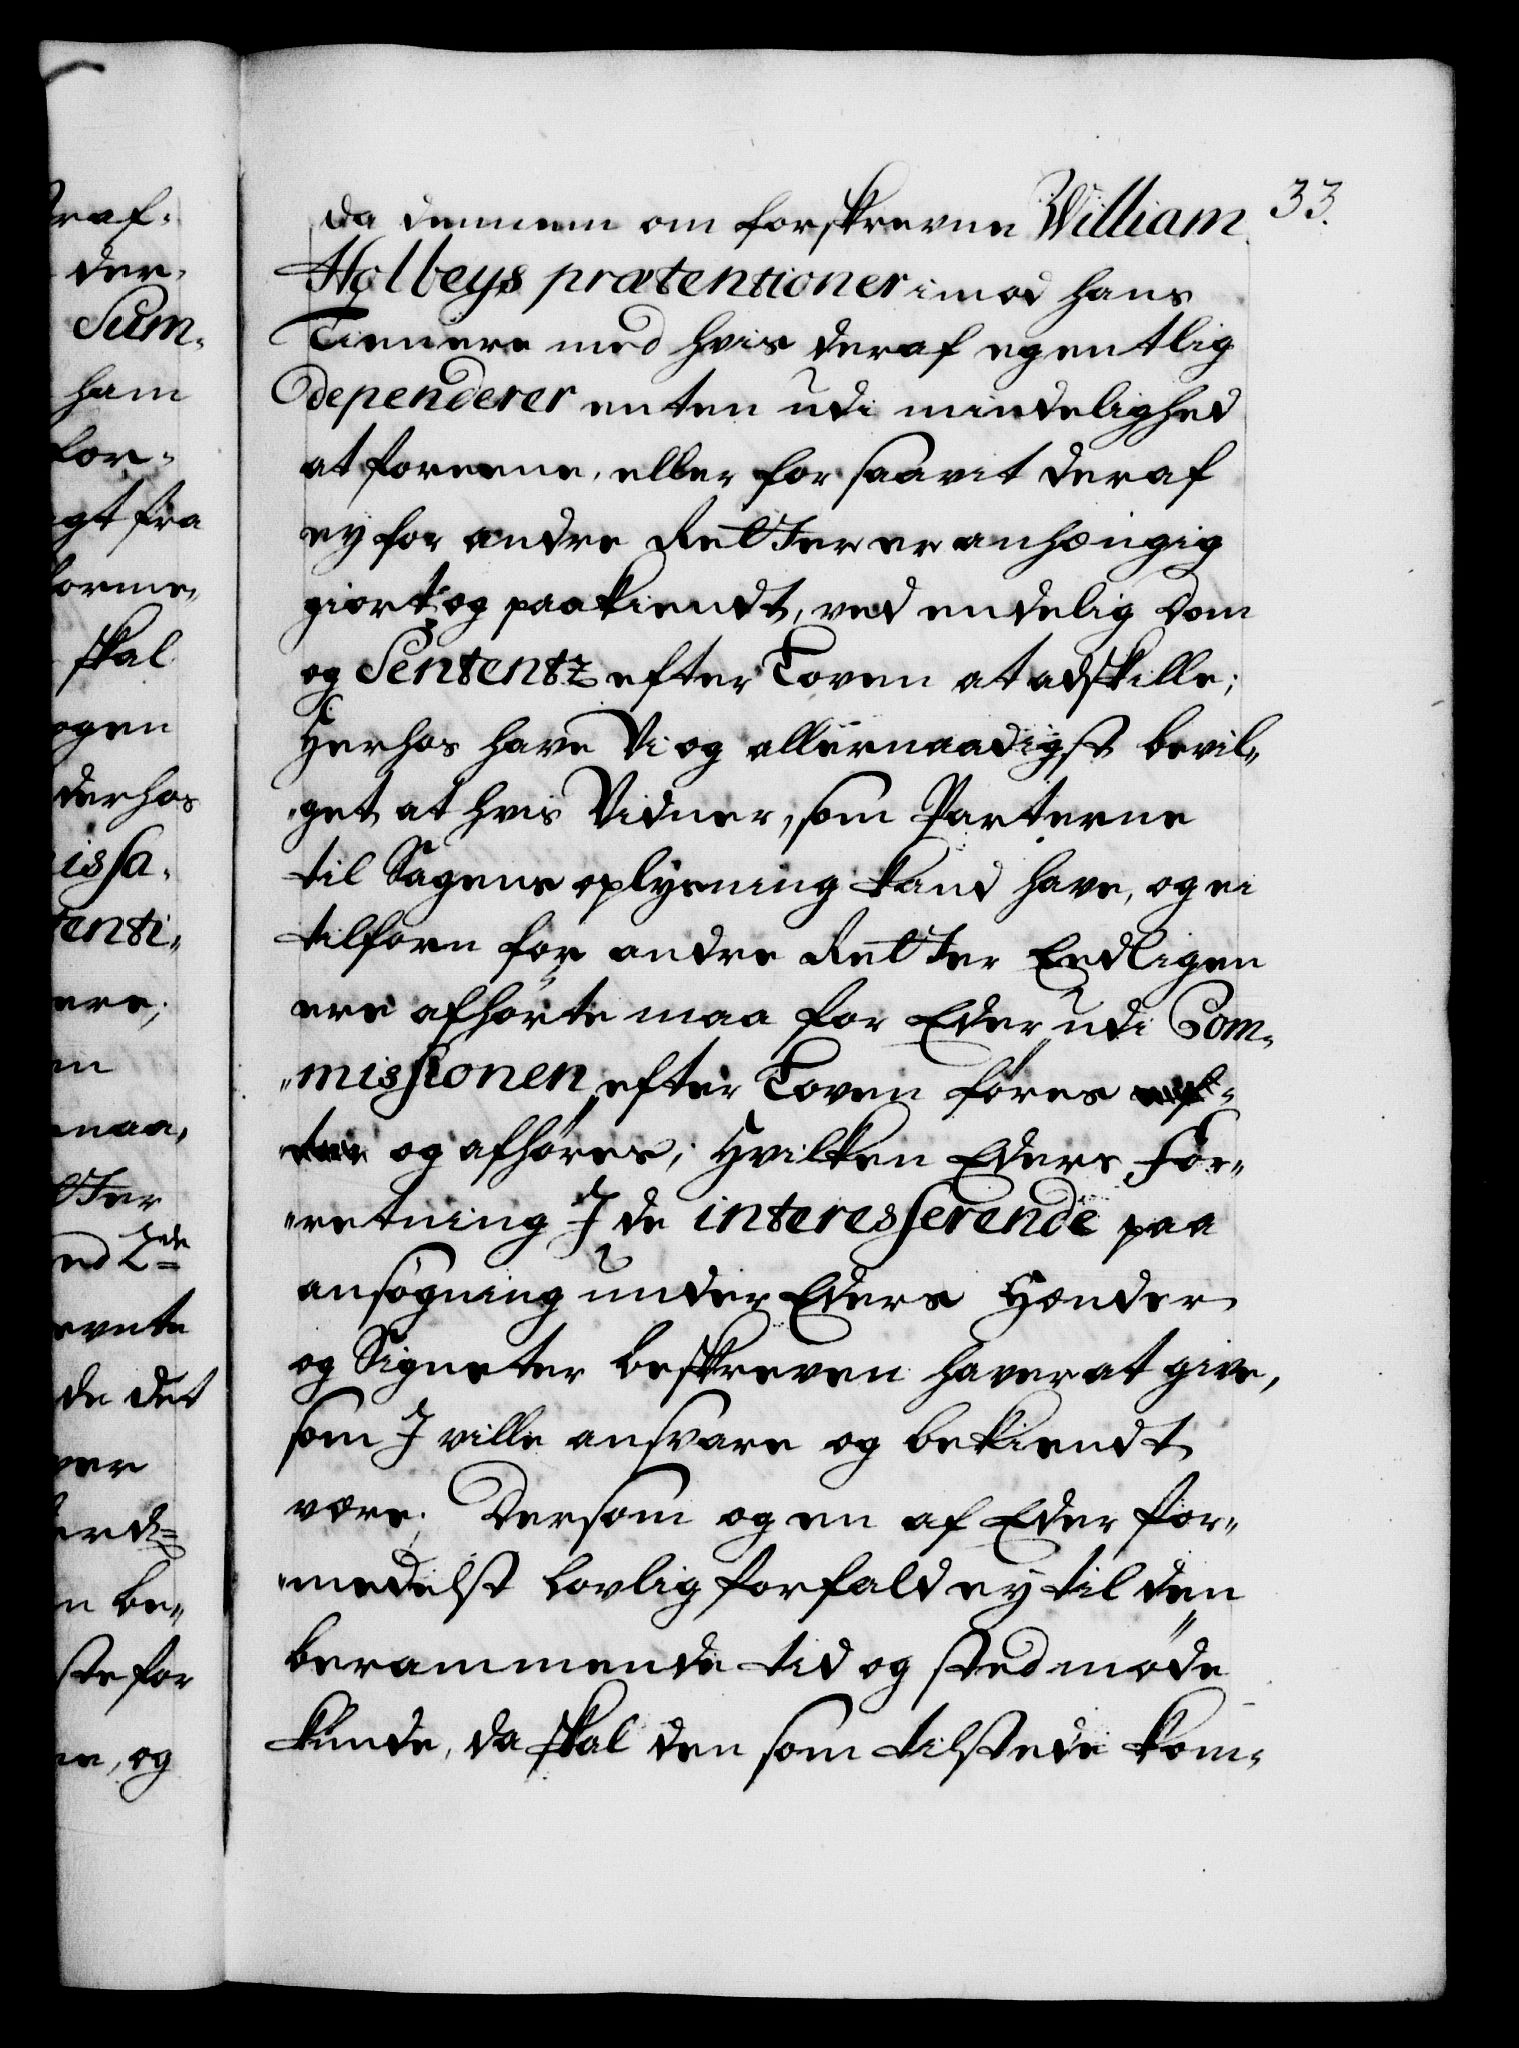 33.
da dennem om forskrevne William
Holbeys prætentioner imod hans
Tienere med hvis deraf egentlig
dependerer enten udi mindelighed
at foreene, eller for saavit deraf
ey for andre Retter er anhængig
giort og paakiendt, ved endelig Dom
og Sententz efter Loven at adskille;
Herhos have Vi og allernaadigst bevil„
„get at hvis Vidner, som Parterne
til Sagens oplysning kand have, og ei
tilforn for andre Retter Eedligen
ere afhørte maa for Eder udi Com„
„missionen efter Loven føres
og afhøres; Hvilken Eders For„
„retning I de interesserende paa
ansøgning under Eders Hænder
og Signeter beskreven haver at give,
som I ville ansvare og bekiendt
være; Dersom og en af Eder for„
„medelst lovlig forfald ey til den
berammende tid og sted møde
kunde, da skal den som tilstede kom„
raf„
der„
Sum„
ham
for„
gt fra
skal
ogen
derhos
issa„
tenti„
ere;
naa,
tter
de det
ver
n be„
ste for
ne, og